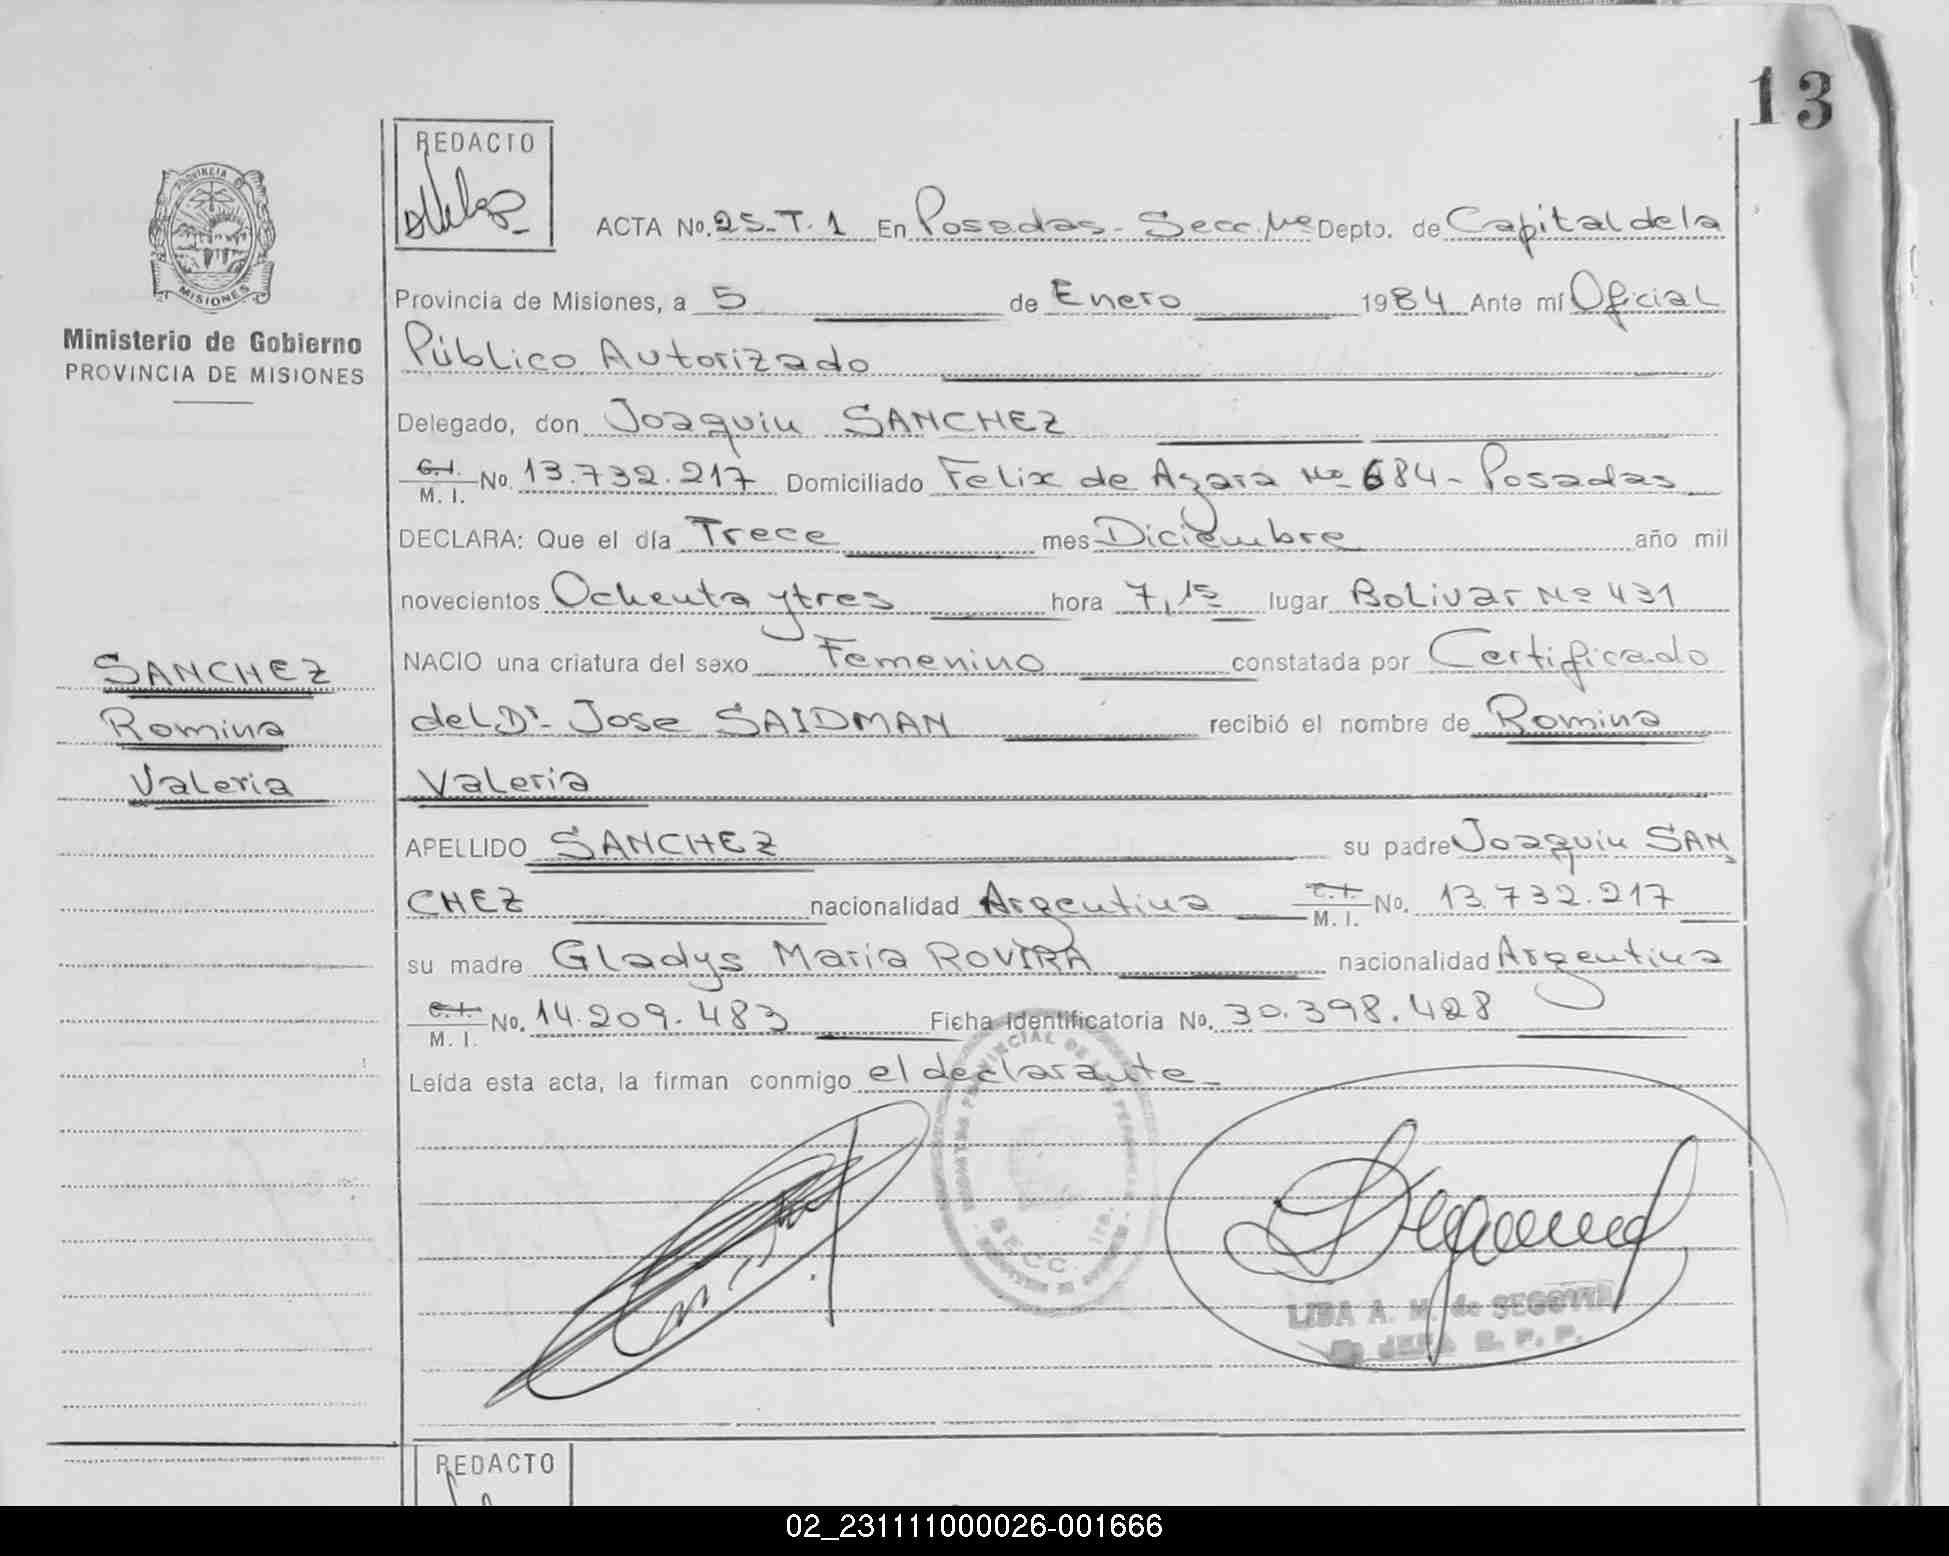 13
REDACTO
PROVINCIA DE
MISIONES
Ministerio de Gobierno
PROVINCIA DE MISIONES
ACTA No. 25-T.1 En Posadas - Secc. 1ra Depto. de Capital de la
Provincia de Misiones, a 5 de Enero 1984 Ante mí Oficial
Público Autorizado
Delegado, don Joaquin SANCHEZ
C.I. M. I. No. 13.732.217 Domiciliado Felix de Azara Nº 684 - Posadas
DECLARA: Que el día Trece mes Diciembre año mil
novecientos Ochenta y tres hora 7,15 lugar Bolivar Nº 431
NACIO una criatura del sexo Femenino constatada por Certificado
del Dr. Jose SAIDMAN recibió el nombre de Romina
Valeria
SANCHEZ
Romina
Valeria
APELLIDO SANCHEZ su padre Joaquin SAN
CHEZ nacionalidad Argentina C.I. M. I. No. 13.732.217
su madre Gladys María ROVIRA nacionalidad Argentina
C.I. M. I. No. 14.209.483 Ficha Identificatoria No. 30.398.428
Leída esta acta, la firman conmigo el declarante -
SECC. 1ra.
LIBA A. M. de SEGOVIA
JEFA R. P. P.
REDACTO
02_231111000026-001666